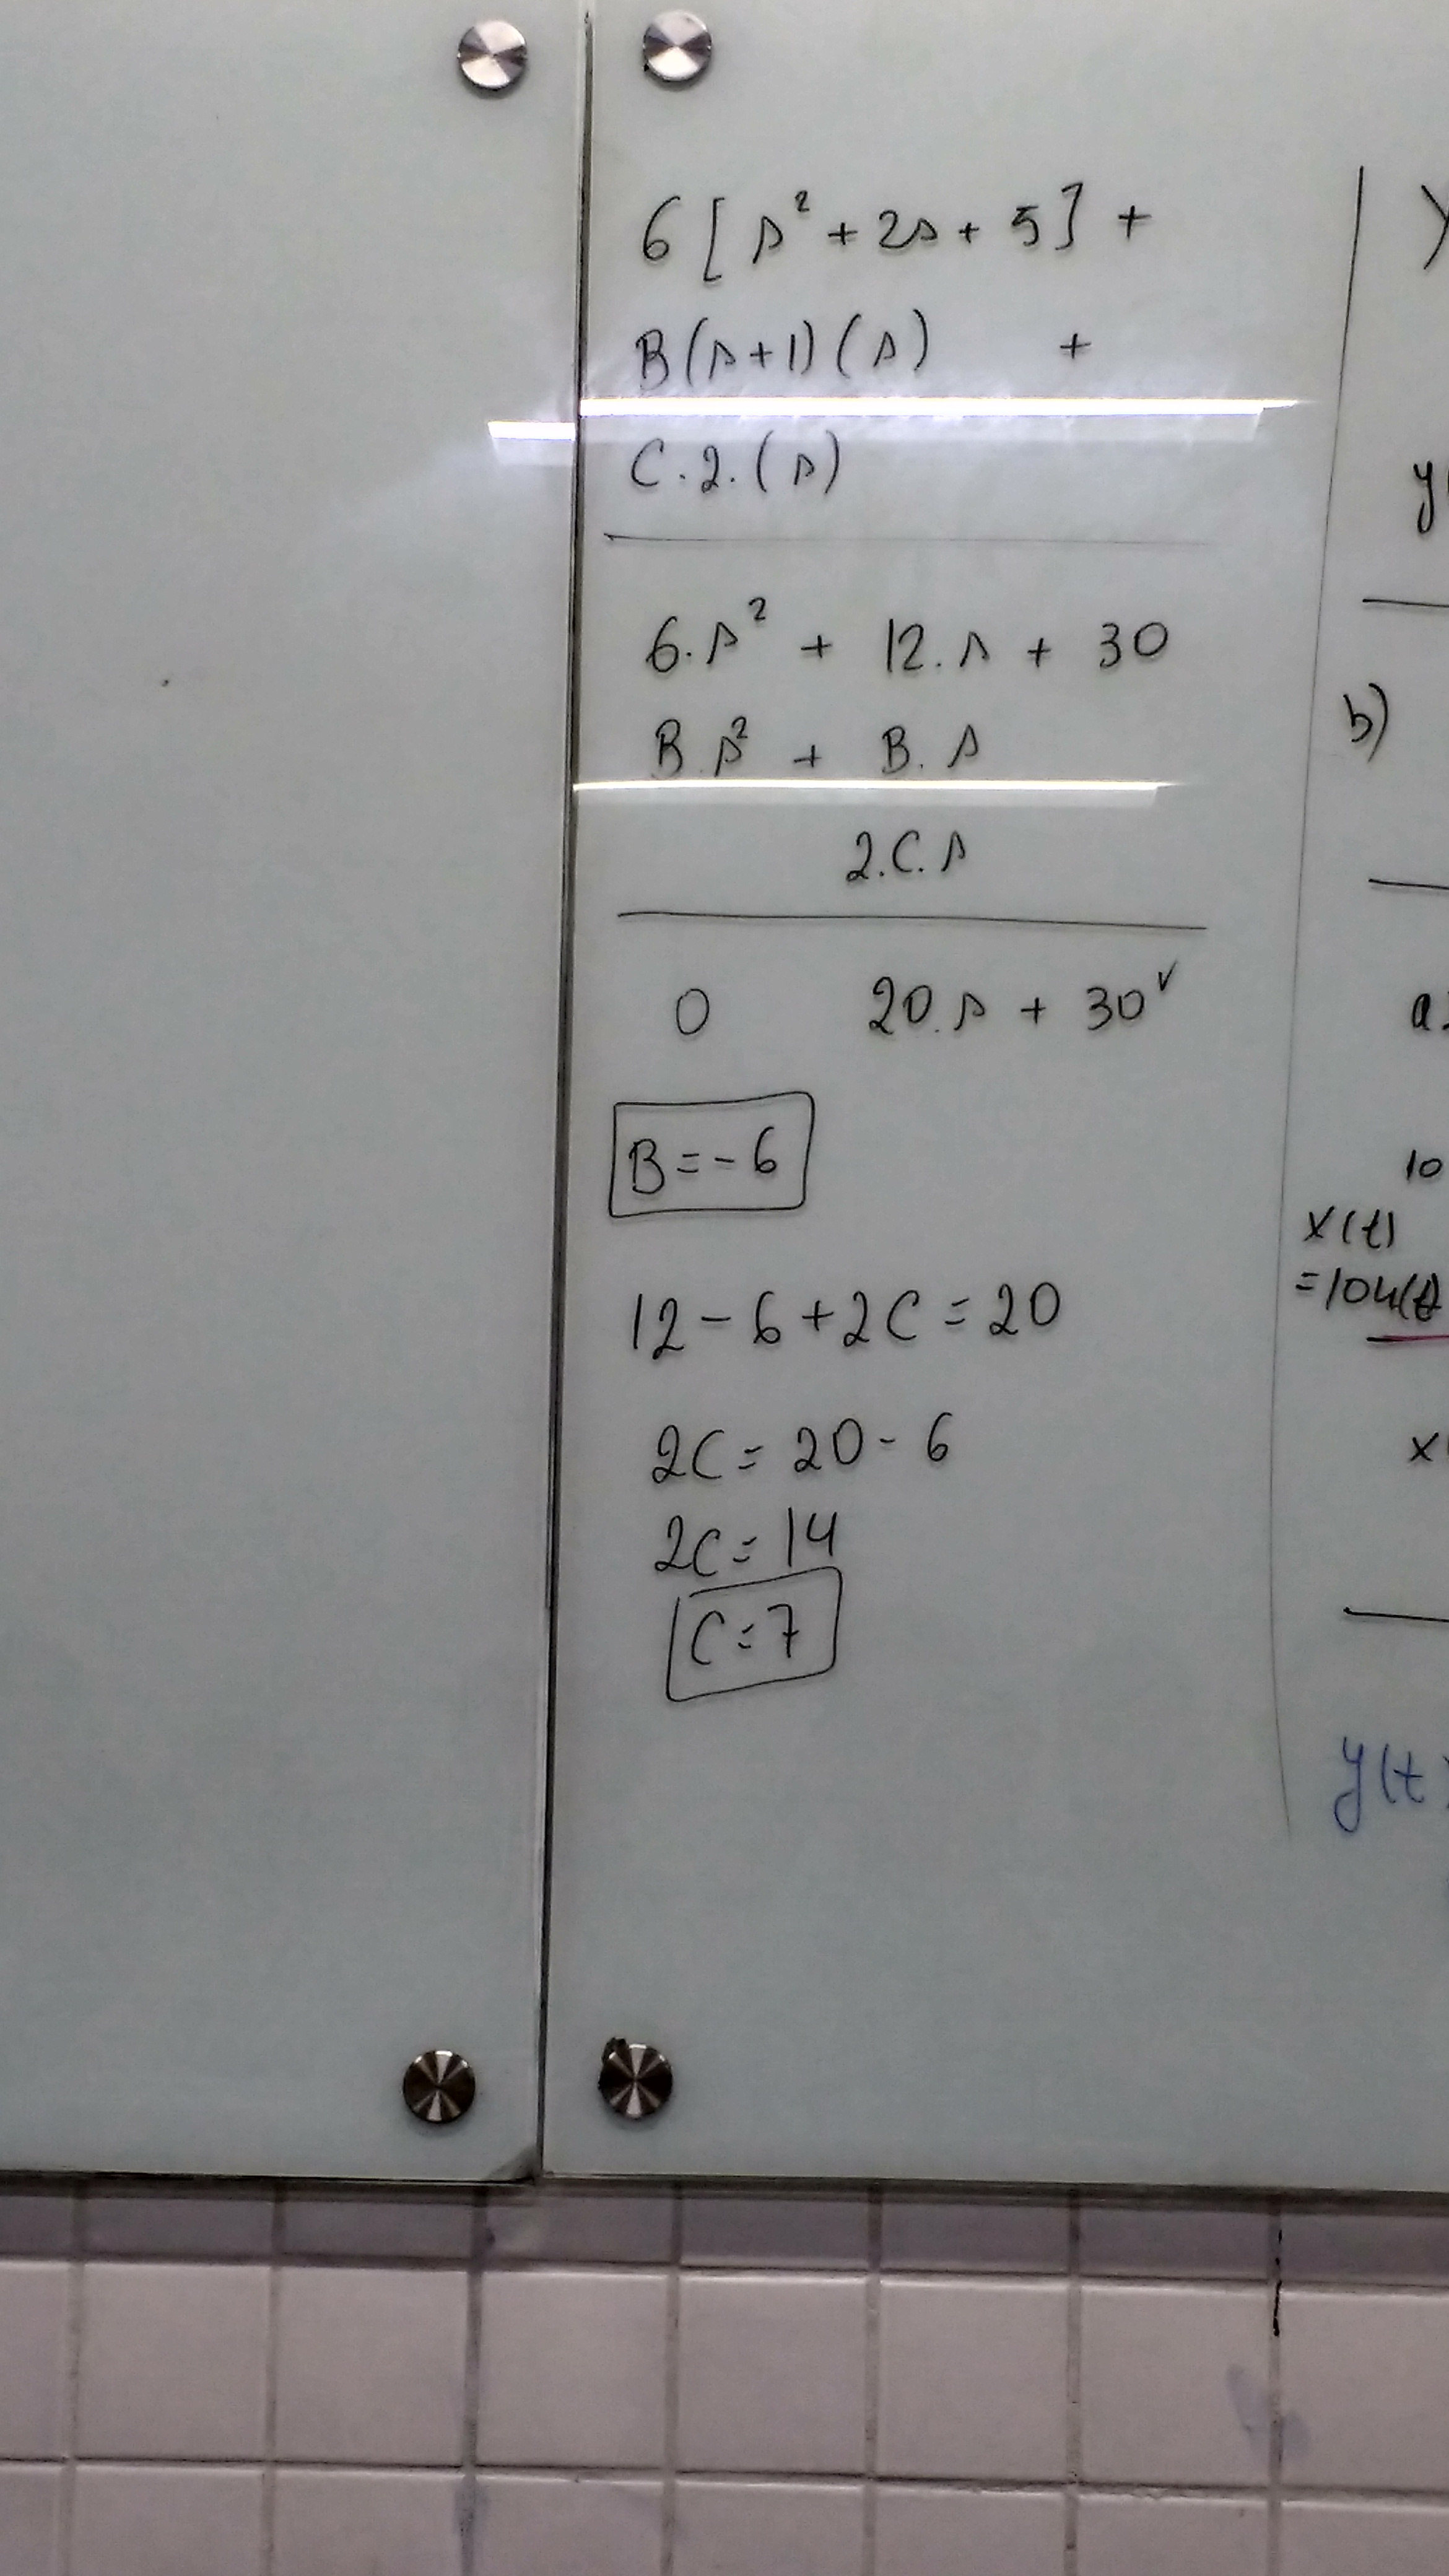 6 [ s² + 2s + 5 ] +
B(s+1)(s) +
C.2.(s)
6.s² + 12.s + 30
B.s² + B.s
2.C.s
0 20.s + 30 ✓
B = -6
12 - 6 + 2C = 20
2C = 20 - 6
2C = 14
C = 7
b)
10
x(t)
=10u(t)
y(t)